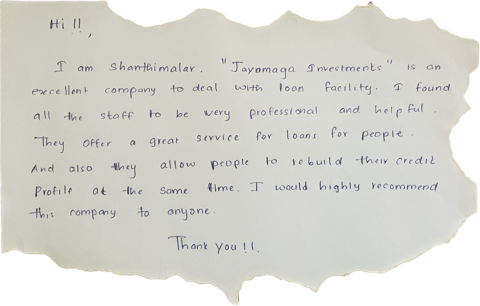 Hi !!,
I am Shanthimalar. "Jayamaga Investments" is an
excellent company to deal with loan facility. I found
all the staff to be very professional and helpful.
They offer a great service for loans for people.
And also they allow people to rebuild their credit
Profile at the same time. I would highly recommend
this company to anyone.
Thank you !!.